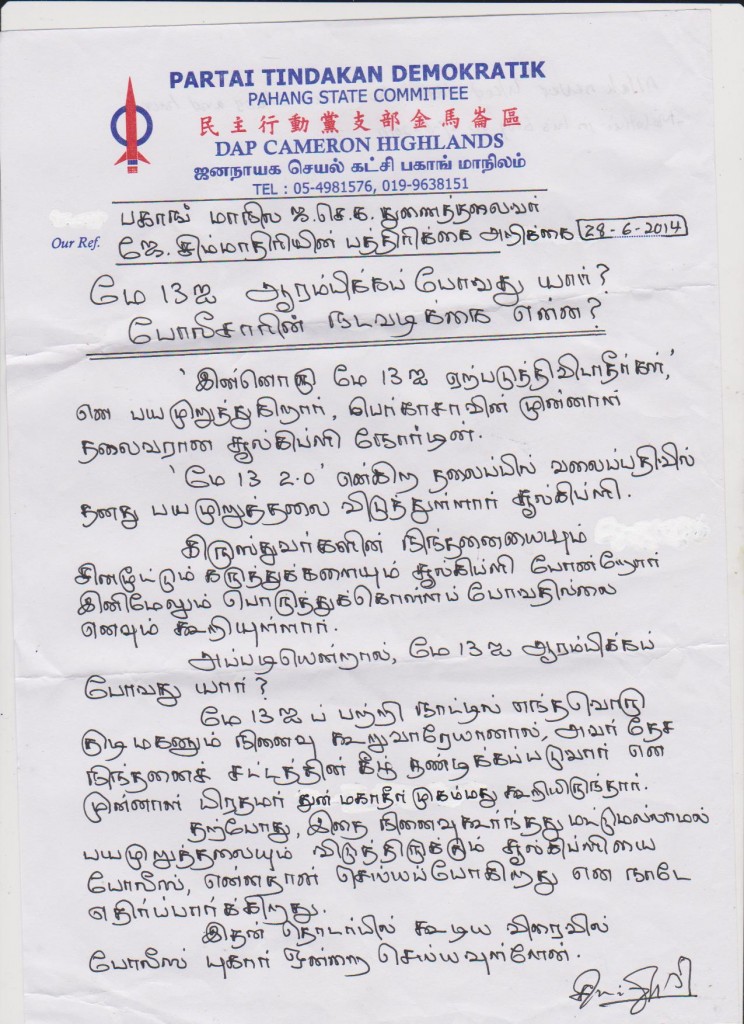 PARTAI TINDAKAN DEMOKRATIK
PAHANG STATE COMMITTEE
民主行動黨支部金馬崙區
DAP CAMERON HIGHLANDS
ஜனநாயக செயல் கட்சி பகாங் மாநிலம்
TEL : 05-4981576, 019-9638151
பகாங் மாநில ஜ.செ.க. துணைத்தலைவர்
Our Ref. ஜே. சிம்மாதிரியின் பத்திரிக்கை அறிக்கை 28-6-2014
மே 13ஐ ஆரம்பிக்கப் போவது யார்?
போலீசாரின் நடவடிக்கை என்ன?
'இன்னொரு மே 13ஐ ஏற்படுத்திவிடாதீர்கள்,'
என பயமுறுத்துகிறார், பெர்காசாவின் முன்னாள்
தலைவரான சூல்கிப்ளி நோர்டின்.
'மே 13 2.0' என்கிற தலைப்பில் வலைப்பதிவில்
தனது பயமுறுத்தலை விடுத்துள்ளார் சூல்கிப்ளி.
கிருஸ்துவர்களின் நிந்தனையையும்
சினமூட்டும் கருத்துக்களையும் சூல்கிப்ளி போன்றோர்
இனிமேலும் பொறுத்துக்கொள்ளப் போவதில்லை
எனவும் கூறியுள்ளார்.
அப்படியென்றால், மே 13ஐ ஆரம்பிக்கப்
போவது யார்?
மே 13ஐப் பற்றி நாட்டில் எந்தவொரு
குடிமகனும் நினைவு கூறுவாரேயானால், அவர் தேச
நிந்தனைச் சட்டத்தின் கீழ் தண்டிக்கப்படுவார் என
முன்னாள் பிரதமர் துன் மகாதீர் முகம்மது கூறியிருந்தார்.
தற்போது, இதை நினைவுகூர்ந்தது மட்டுமல்லாமல்
பயமுறுத்தலையும் விடுத்திருக்கும் சூல்கிப்ளியை
போலீஸ், என்னதான் செய்யப்போகிறது என நாடே
எதிர்ப்பார்க்கிறது.
இதன் தொடர்பில் கூடிய விரைவில்
போலீஸ் புகார் ஒன்றை செய்யவுள்ளேன்.